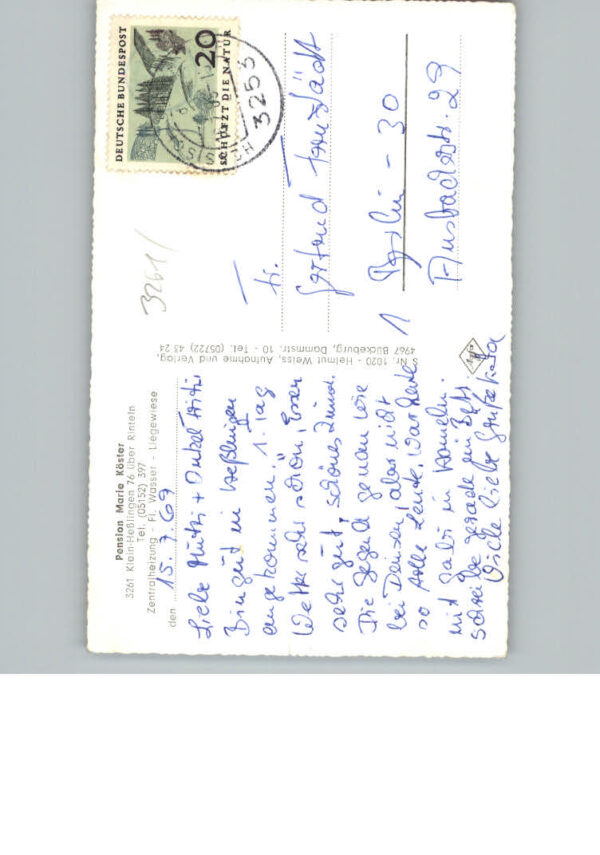 Pension Marie Köster
3261 Klein-Heßlingen 76 über Rinteln
Tel. (05152) 397
Zentralheizung - Fl. Wasser - Liegewiese
den 15.7.69
Liebe Mutti + Onkel Fritz
Bin gut in Heßlingen
angekommen. 1. Tag
Wetter sehr schön, Essen
sehr gut, schönes Zimm.
Die Gegend genau wie
bei Deinsen, aber nicht
so tolle Leute. War heute
mit Gabi in Hameln.
schreibe gerade im Bett.
Viele liebe Grüße
S Nr. 1020 - Helmut Weiss, Aufnahme und Verlag,
4967 Bückeburg, Dammstr. 10 - Tel. (05722) 43 24
Agfa
3261/
DEUTSCHE BUNDESPOST
20
SCHÜTZT DIE NATUR
3253
Fr.
Gertrud
1 Berlin - 30
Ansbacherstr. 29